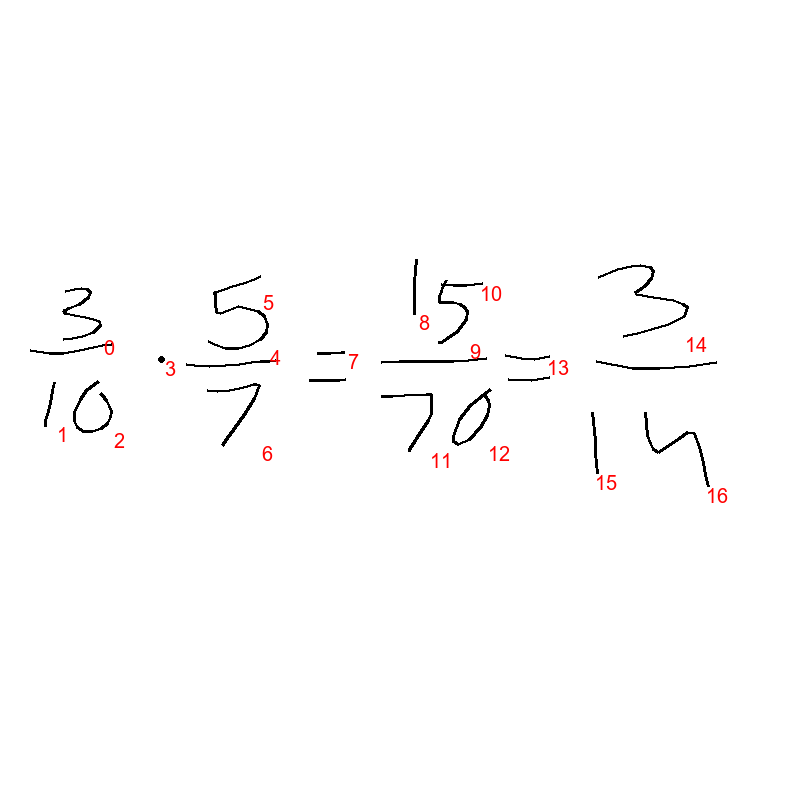 3/10 · 5/7 = 15/70 = 3/14
0 1 2 3 4 5 6 7 8 9 10 11 12 13 14 15 16